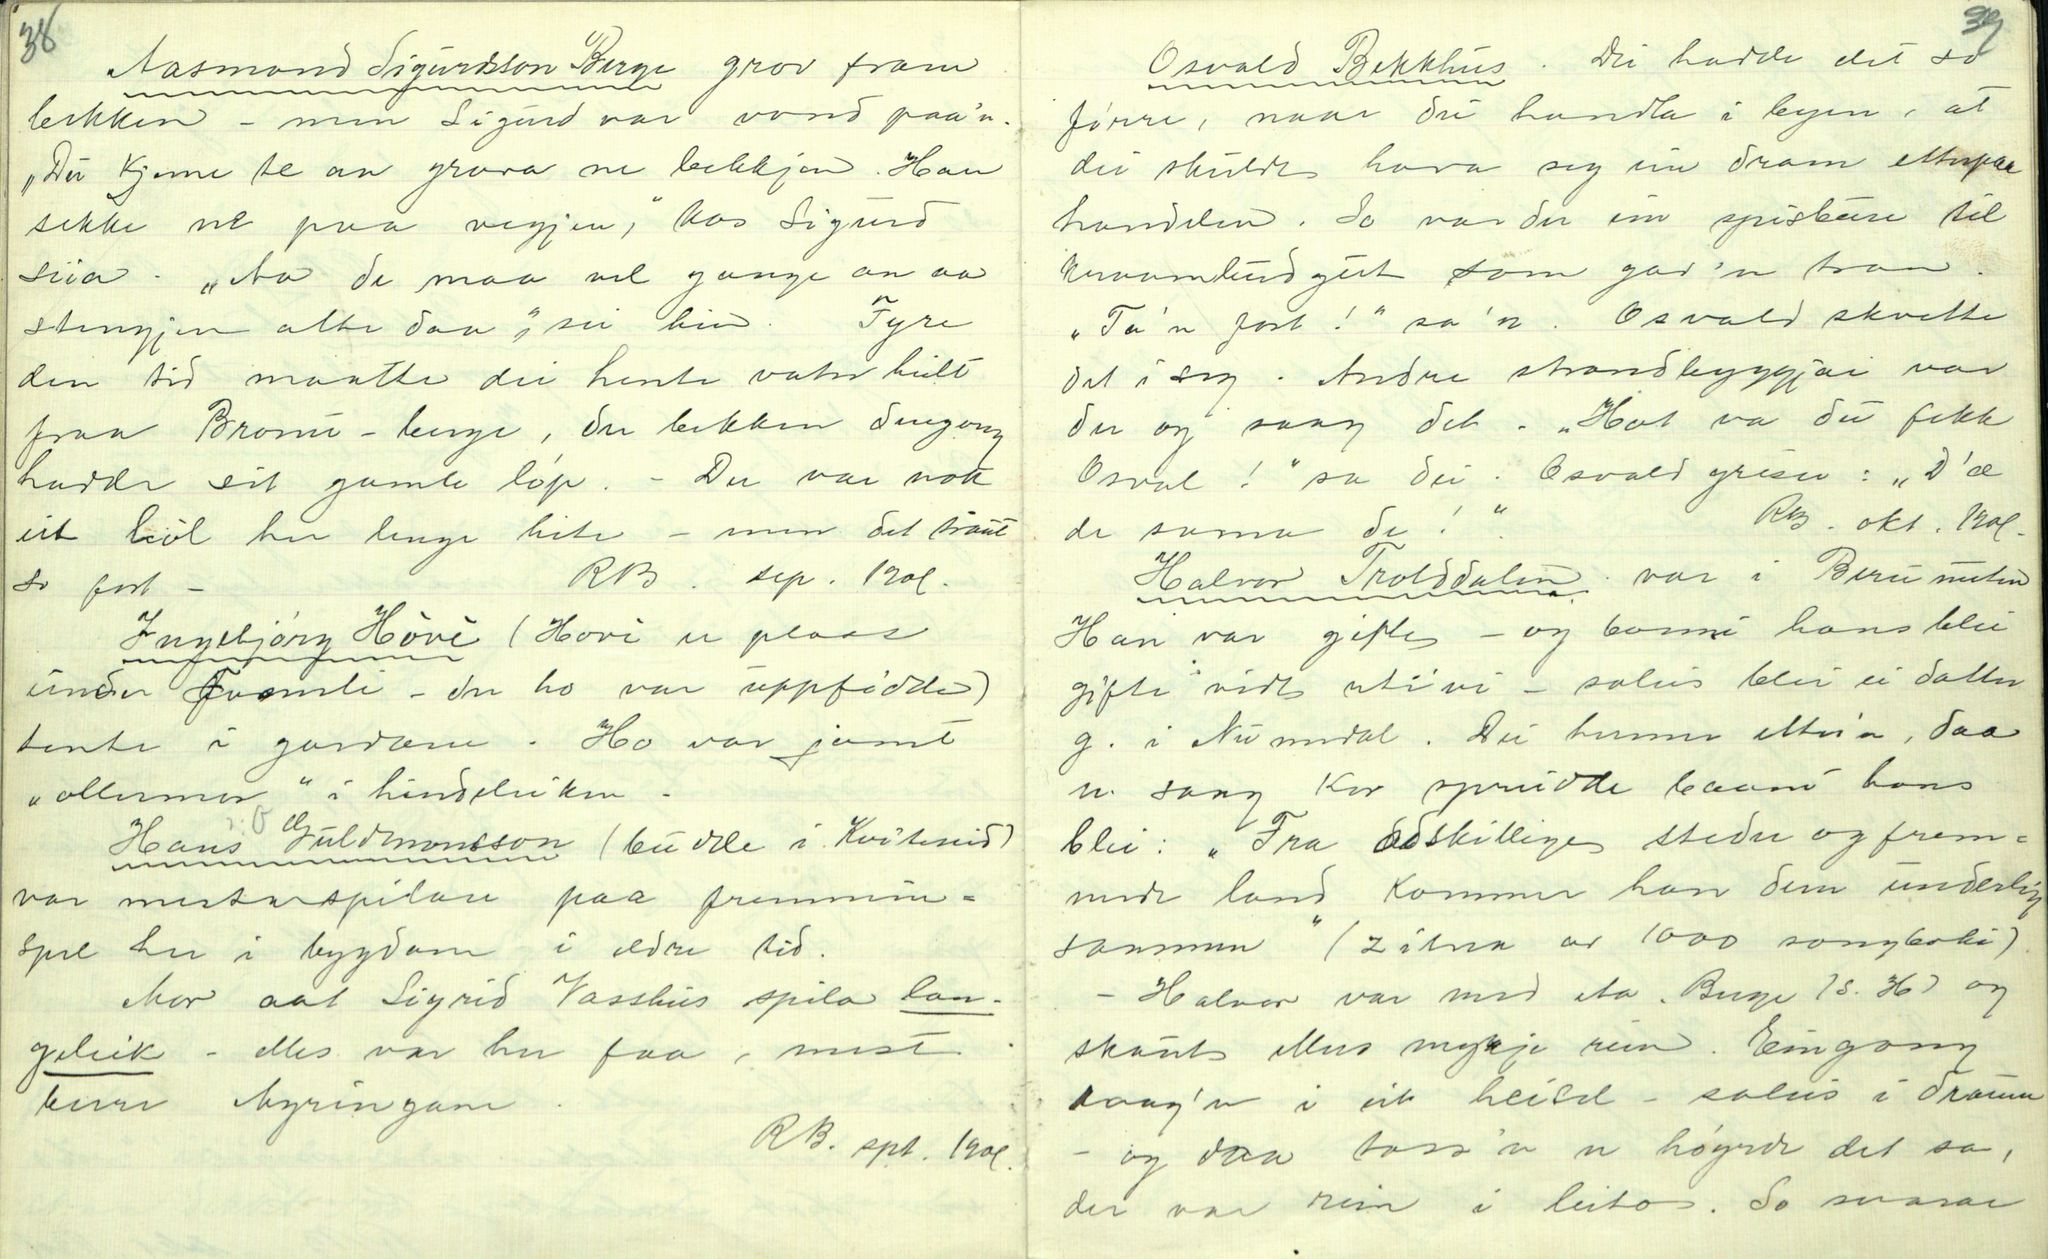 38
Aasmond Sigurdsson Berge grov fram
bekken – men Sigurd var vond paa'n.
„Du kjeme te an grava ne bekkjen. Han
sekke ne paa vegjen," kas Sigurd
sia. „Aa de maa vel gange an aa
stengjen atte daa", sei hin. Fyre
den tid maatte dei hente vatn heilt
fraa Bromu-berge, der bekken dengong
hadde sit gamle löp. – Der var nok
eit höl her lenge hite – men det traut
so fort – RB. sep. 1901.
Ingebjörg Hövi (Hovi er plass
under Fosmli – der ho var uppfödde)
tente i gardane. Ho var jamt
„ollermor" i hindeleiken.
Hans Guldmonsson (budde i Kviteseid)
var mesterspilare paa fremmin-
spel her i bygdom i eldre tid.
Mor aat Sigrid Vasshus spila lan-
geleik – elles var her faa, mest
berre kyringane.
RB. spt. 1901.
39
Osvald Bekkhus. Dei hadde det so
förre, naar dei handla i byen, at
dei skulde hava seg ein dram etterpaa
handelen. So var der ein spisbue til
kraambudgut som gav'n tran.
„Ta'n fort!" sa'n. Osvald skvette
det i seg. Andre strandbyggjar var
der og saag det. „Hot va du fekk
Osval!" sa dei. Osvald griser: „D'æ
de sama de!" RB. okt. 1901.
Halvor Trolddalen var i Berunuten
Han var gifte – og bonni hans blei
gifte vidt utivi – soleis blei ei dotter
g. i Numedal. Dei hermer etter'n, daa
n. saag kor spreidde baani hans
blei: „Fra adskillige steder og frem-
mede land kommer han dem underlig
sammen" (zitera av 1000 songboki)
– Halvor var med Aa. Berge (S. H) og
skaut elles mykje rein. Eingong
saag'n i eit heisel – soleis i draum
– og daa toss'n n högrde det sa,
der var rein i leitos. So svarar